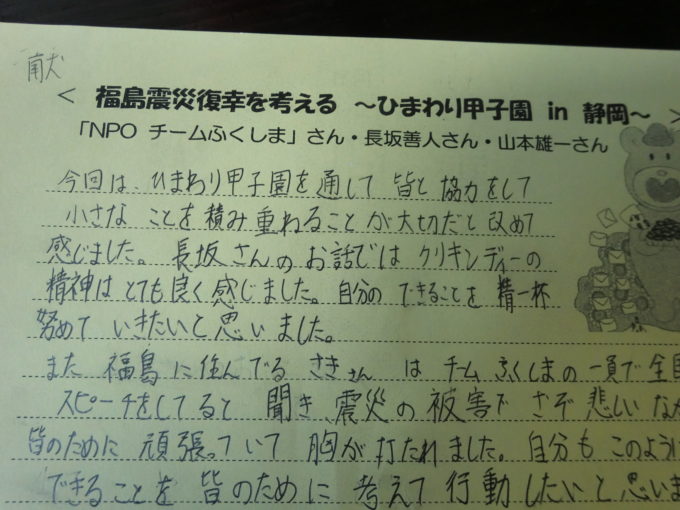 献
< 福島震災復幸を考える ~ひまわり甲子園 in 静岡~ >
「NPO チームふくしま」さん・長坂善人さん・山本雄一さん
今回は、ひまわり甲子園を通して 皆と 協力をして
小さな ことを 積み 重ねることが 大切だと 改めて
感じました。長坂さんの お話では クリキンディーの
精神は とても 良く 感じました。自分の できることを 精一杯
努めて いきたいと 思いました。
また 福島に 住んでる さきさん は チーム ふくしまの 一員で 全国
スピーチをしてると 聞き 震災の 被害下 さぞ 悲しい
皆のために 頑張っていて 胸が 打たれました。自分も このように
できることを 皆のために 考えて 行動したいと 思いま